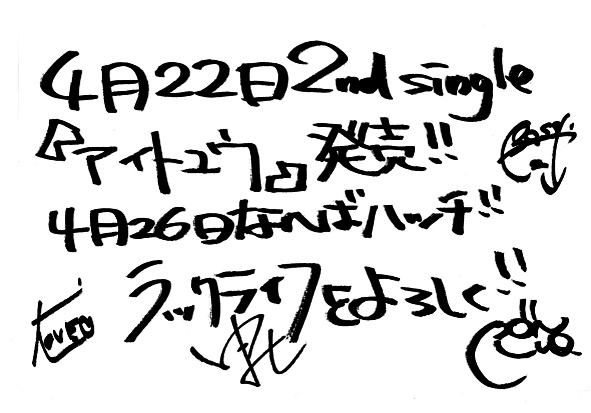 4月22日2nd single
『アイトユウ』発売!!
4月26日なんばハッチ!!
ラックライフをよろしく!!